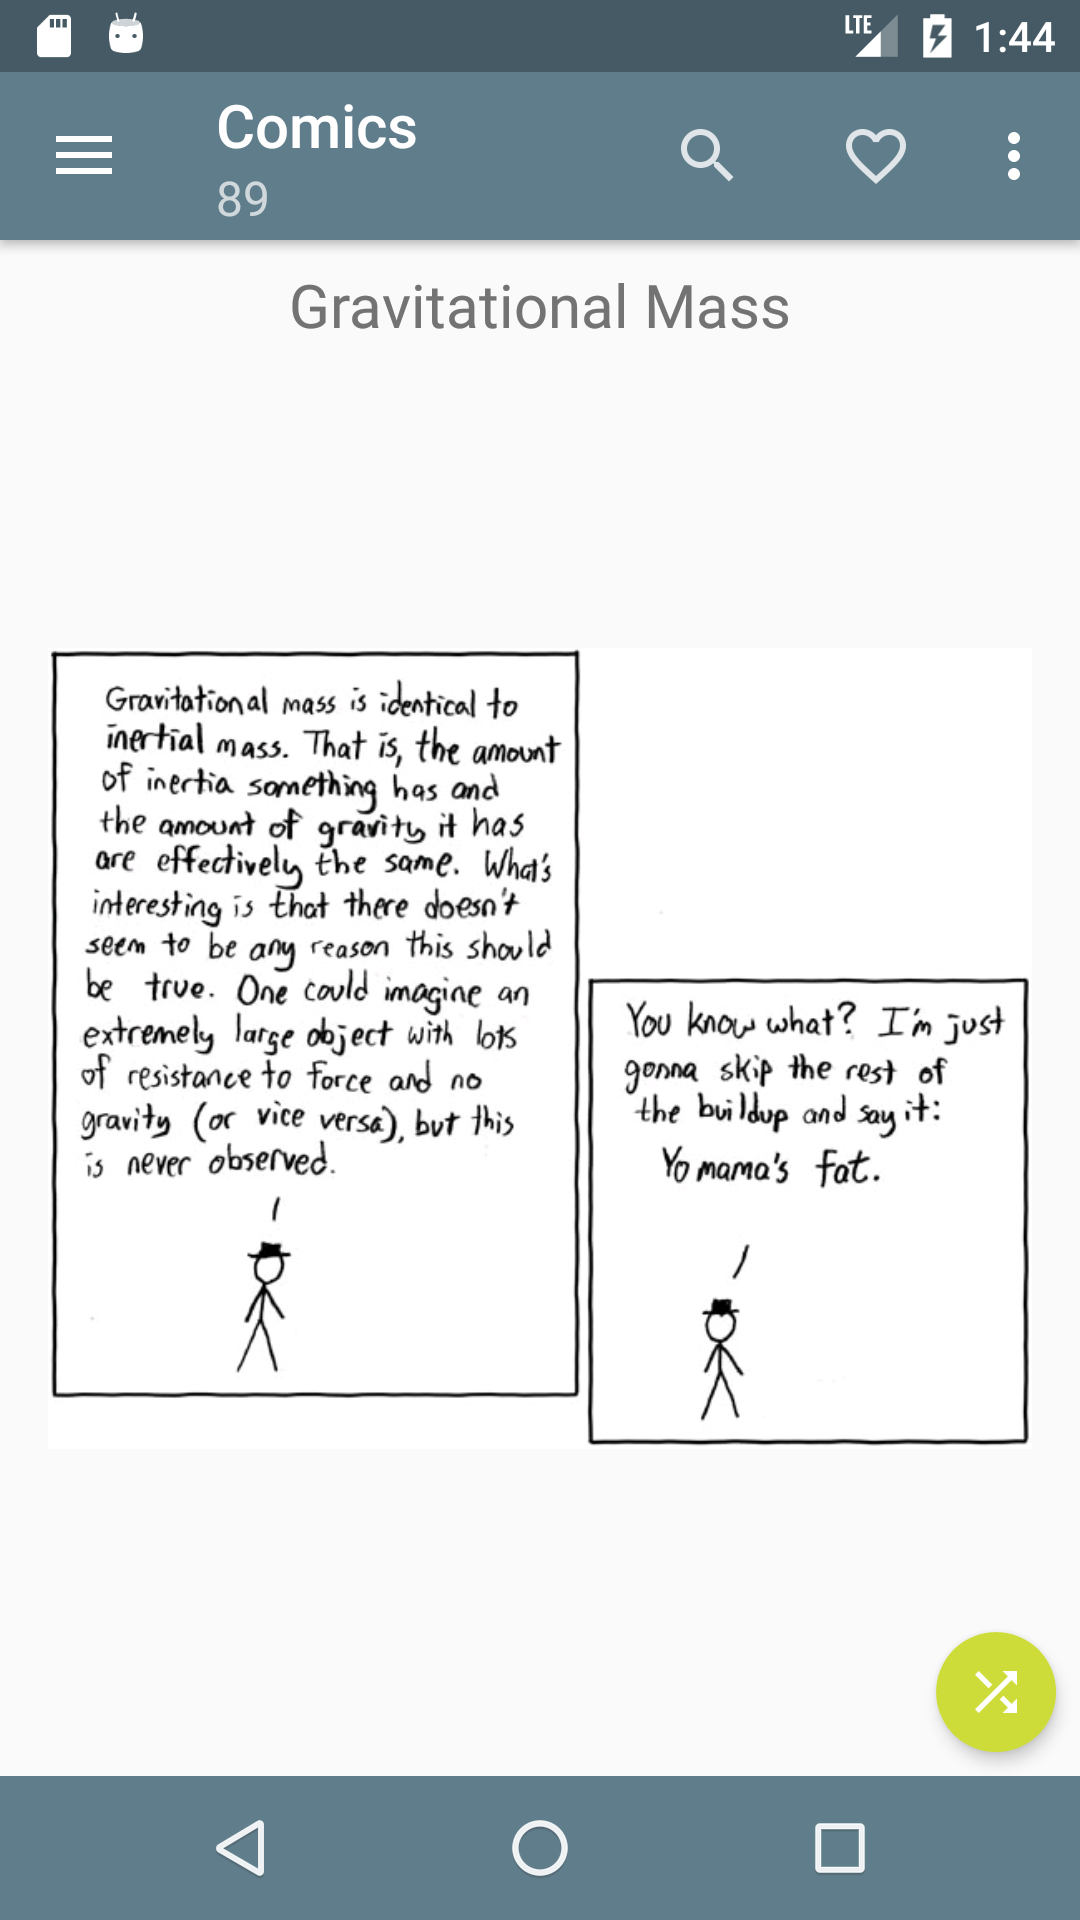 LTE 1:44
Comics
89
Gravitational Mass
Gravitational mass is identical to
inertial mass. That is, the amount
of inertia something has and
the amount of gravity it has
are effectively the same. What's
interesting is that there doesn't
seem to be any reason this should
be true. One could imagine an
extremely large object with lots
of resistance to force and no
gravity (or vice versa), but this
is never observed.
You know what? I'm just
gonna skip the rest of
the buildup and say it:
Yo mama's fat.